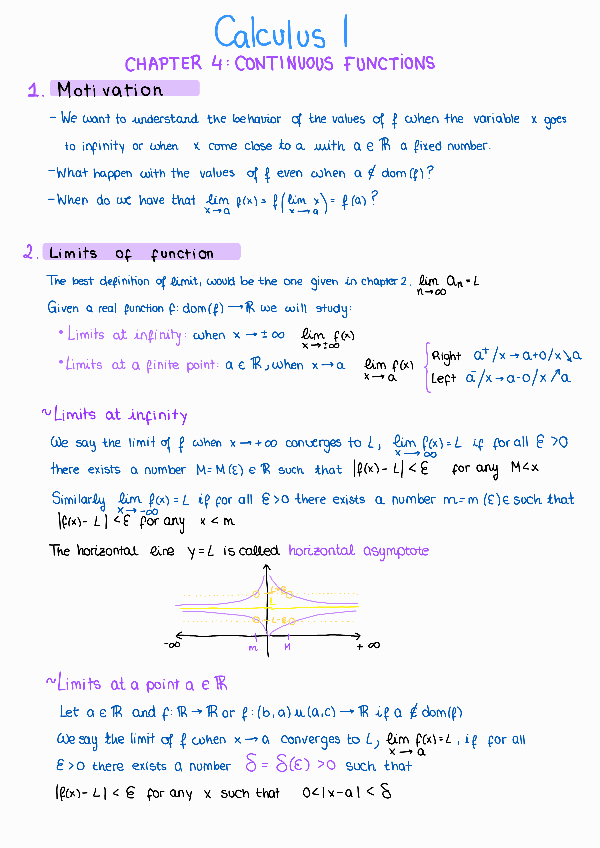 Calculus 1
CHAPTER 4: CONTINUOUS FUNCTIONS
1. Motivation
- We want to understand the behavior of the values of f when the variable x goes
to infinity or when x come close to a with a ∈ ℝ a fixed number.
- What happen with the values of f even when a ∉ dom(f)?
- When do we have that lim f(x) = f(lim x) = f(a)?
x→a x→a
2. Limits of function
The best definition of limit, would be the one given in chapter 2, lim an = L
n→∞
Given a real function f: dom(f) → ℝ we will study:
• Limits at infinity: when x → ±∞ lim f(x)
x→±∞
• Limits at a finite point: a ∈ ℝ, when x→a lim f(x)
x→a
Right a⁺/x→a+0/x↘a
Left a⁻/x→a-0/x↗a
~Limits at infinity
We say the limit of f when x→+∞ converges to L, lim f(x) = L if for all ε >0
x→∞
there exists a number M=M(ε) ∈ ℝ such that |f(x)-L| < ε for any M<x
Similarly lim f(x) = L if for all ε>0 there exists a number m=m(ε)∈ such that
x→-∞
|f(x)-L| < ε for any x < m
The horizontal line y=L is called horizontal asymptote
L+ε
L
L-ε
-∞ m M +∞
~Limits at a point a ∈ ℝ
Let a∈ℝ and f: ℝ→ℝ or f: (b,a)∪(a,c) → ℝ if a ∉ dom(f)
We say the limit of f when x→a converges to L, lim f(x)=L, if for all
x→a
ε>0 there exists a number δ = δ(ε) >0 such that
|f(x)-L| < ε for any x such that 0<|x-a| < δ